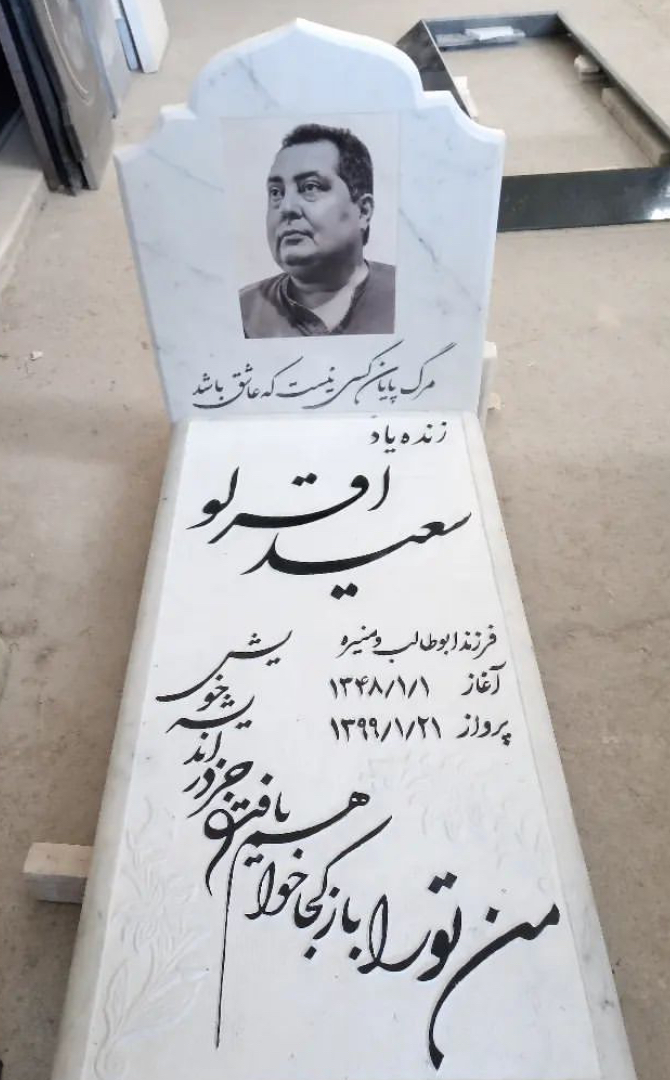 مرگ پایان کسی نیست که عاشق باشد
زنده یاد
سعید اقرلو
فرزند ابوطالب و منیره
آغاز ۱۳۴۸/۱/۱
پرواز ۱۳۹۹/۱/۲۱
من تو را باز کجا خواهیم یافت
جز در اندیشه خویش